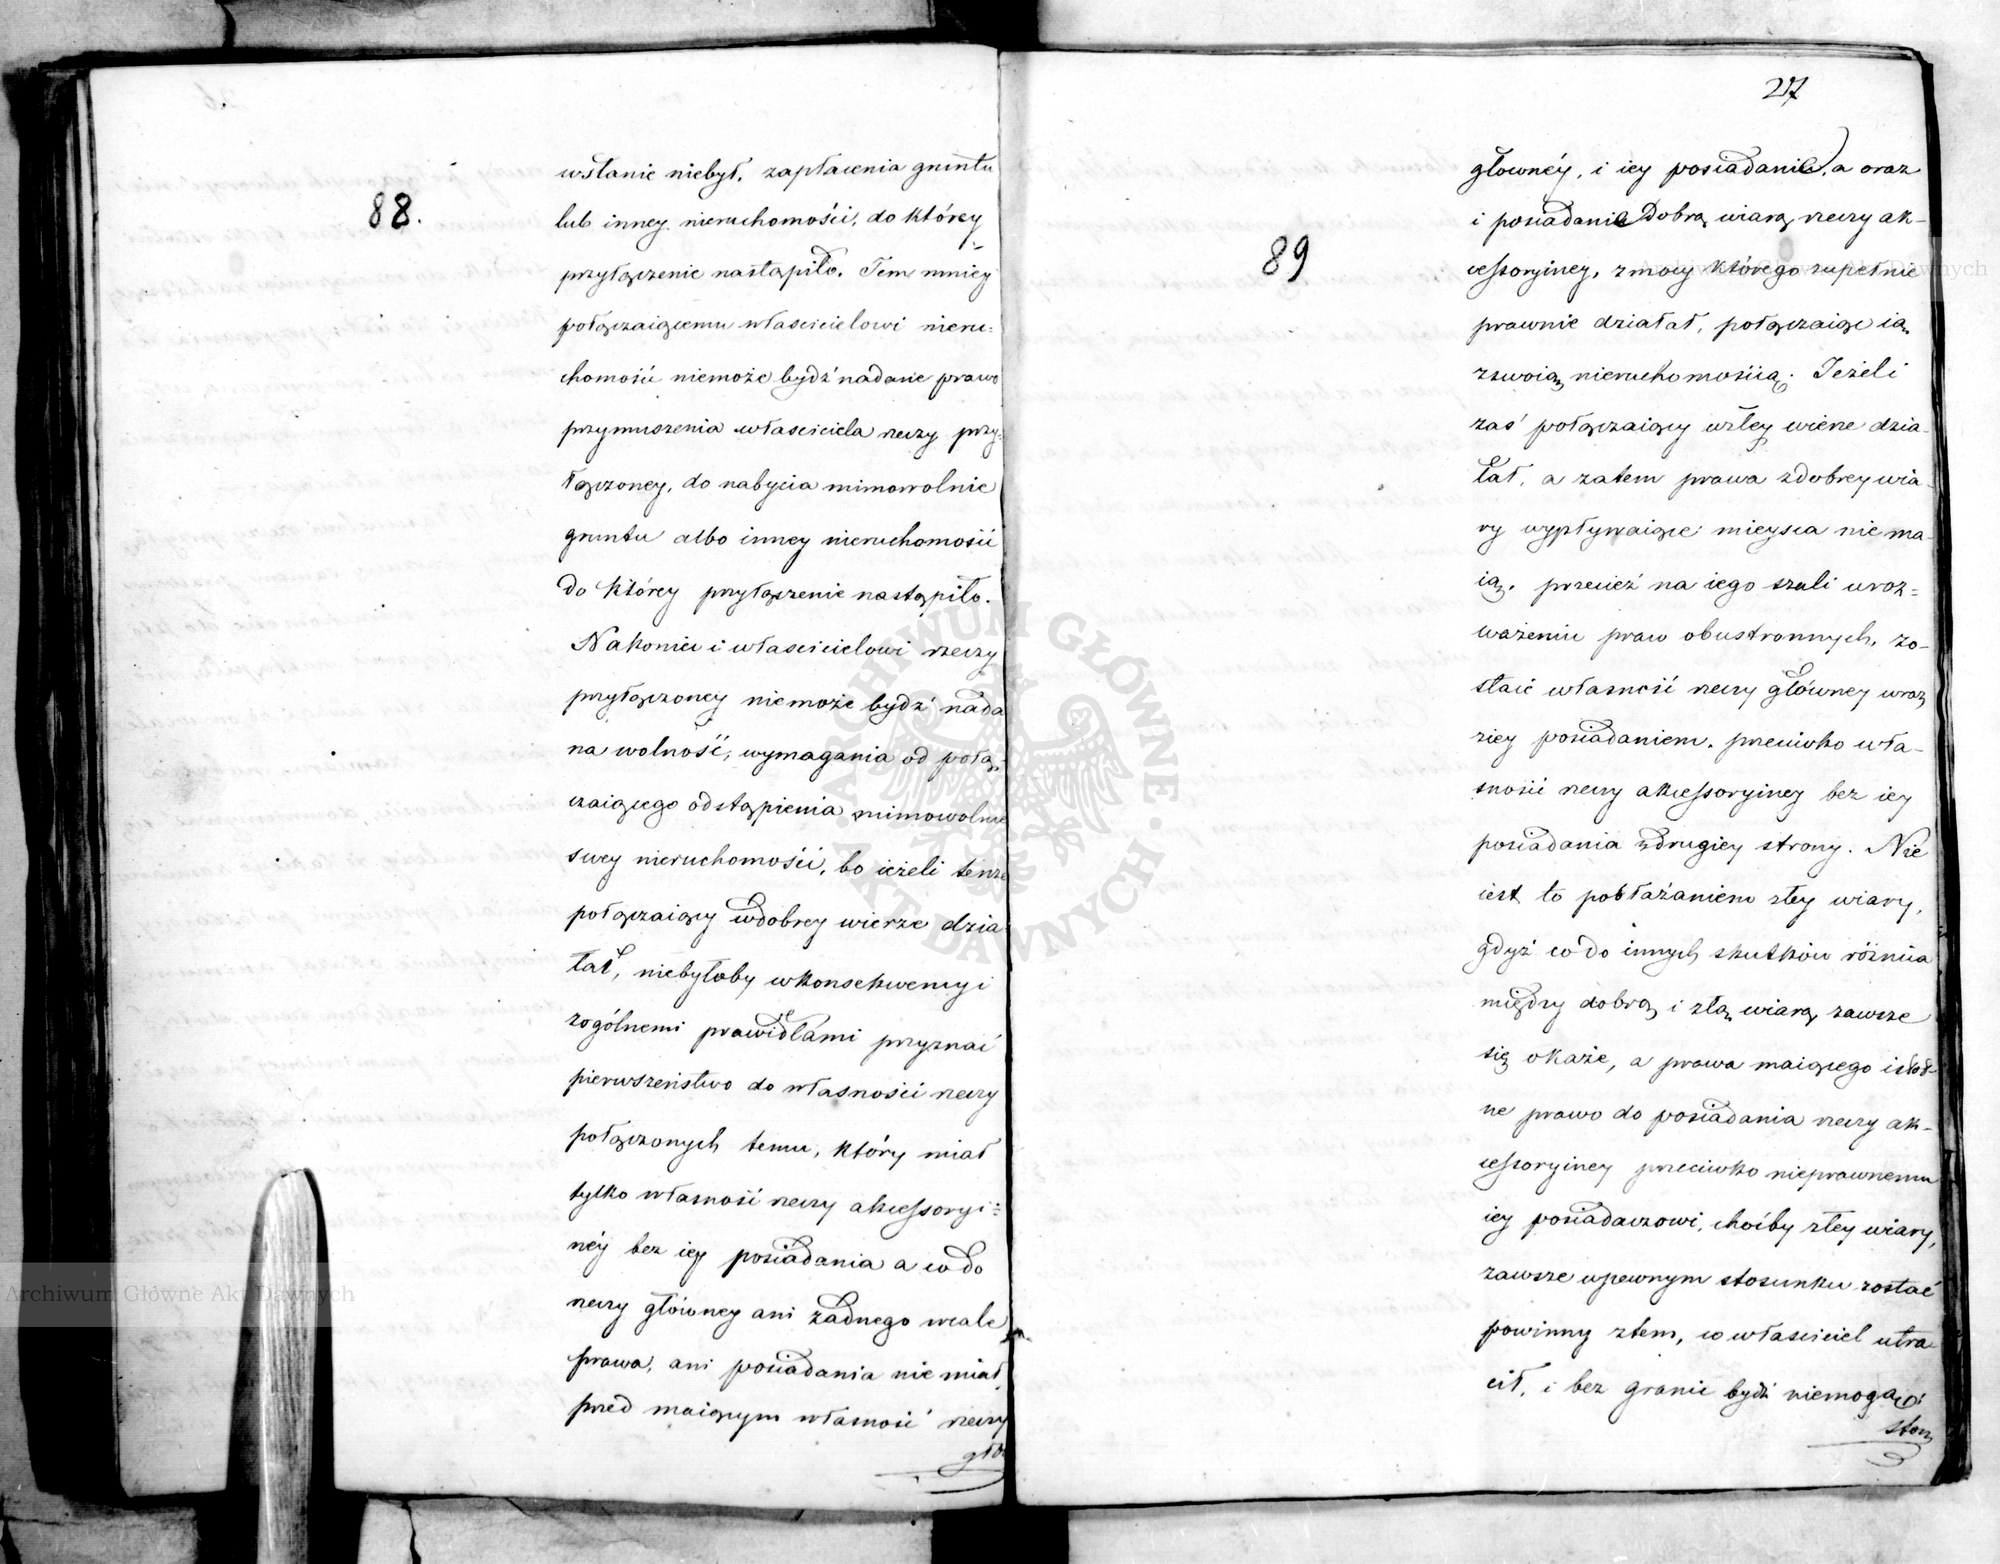 88.
wstanie niebył, zapłacenia gruntu
lub inney nieruchomości, do którey
przyłączenie nastąpiło. Tem mniey
połączaiącemu właścicielowi nieru=
chomości niemoże bydź nadane prawo
przymuszenia właściciela rzeczy przy=
łączoney, do nabycia mimowolnie
gruntu albo inney nieruchomości
do którey przyłączenie nastąpiło.
Nakoniec i właścicielowi rzeczy
przyłączoney niemoże bydź nada
na wolność, wymagania od połą=
czaiącego odstąpienia mimowolnie
swey nieruchomości, bo ieżeli tenże
połączaiący wdobrey wierze dzia=
łał, niebyłoby wkonsekwencyi
zogólnemi prawidłami przyznać
pierwszeństwo do własności rzeczy
połączonych temu, który miał
tylko własność rzeczy akcessoryi=
néy bez iey posiadania a co do
rzeczy główney ani żadnego wcale
prawa, ani posiadania nie miał
przed maiącym własność rzeczy
głó
27
89
głównéy, i iey posiadanie, a oraz
i posiadanie Dobrą wiarą rzeczy ak-
cessoryiney, zmocy którego zupełnie
prawnie działał, połączaiąc ią
zswoią nieruchomością. Jeżeli
zaś połączaiący wzłey wierze dzia-
łał, a zatem prawa zdobrey wia-
ry wypływaiące mieysca nie ma-
ią, przecież na iego szali wroz=
ważeniu praw obustronnych, zo-
staie własność rzeczy główney wraz
ziey posiadaniem, przeciwko wła-
sności rzeczy akcessoryiney bez iey
posiadania zdrugiey strony. Nie
iest to pobłażaniem złey wiary,
gdyż co do innych skutków różnica
między dobrą i złą wiarą zawsze
się okaże, a prawa maiącego
ne prawo do posiadania rzeczy ak-
cessoryiney przeciwko nieprawnemu
iey posiadaczowi, choćby złey wiary,
zawsze wpewnym stosunku zostać
powinny ztem, co właściciel utra-
cił, i bez granic bydź niemogą